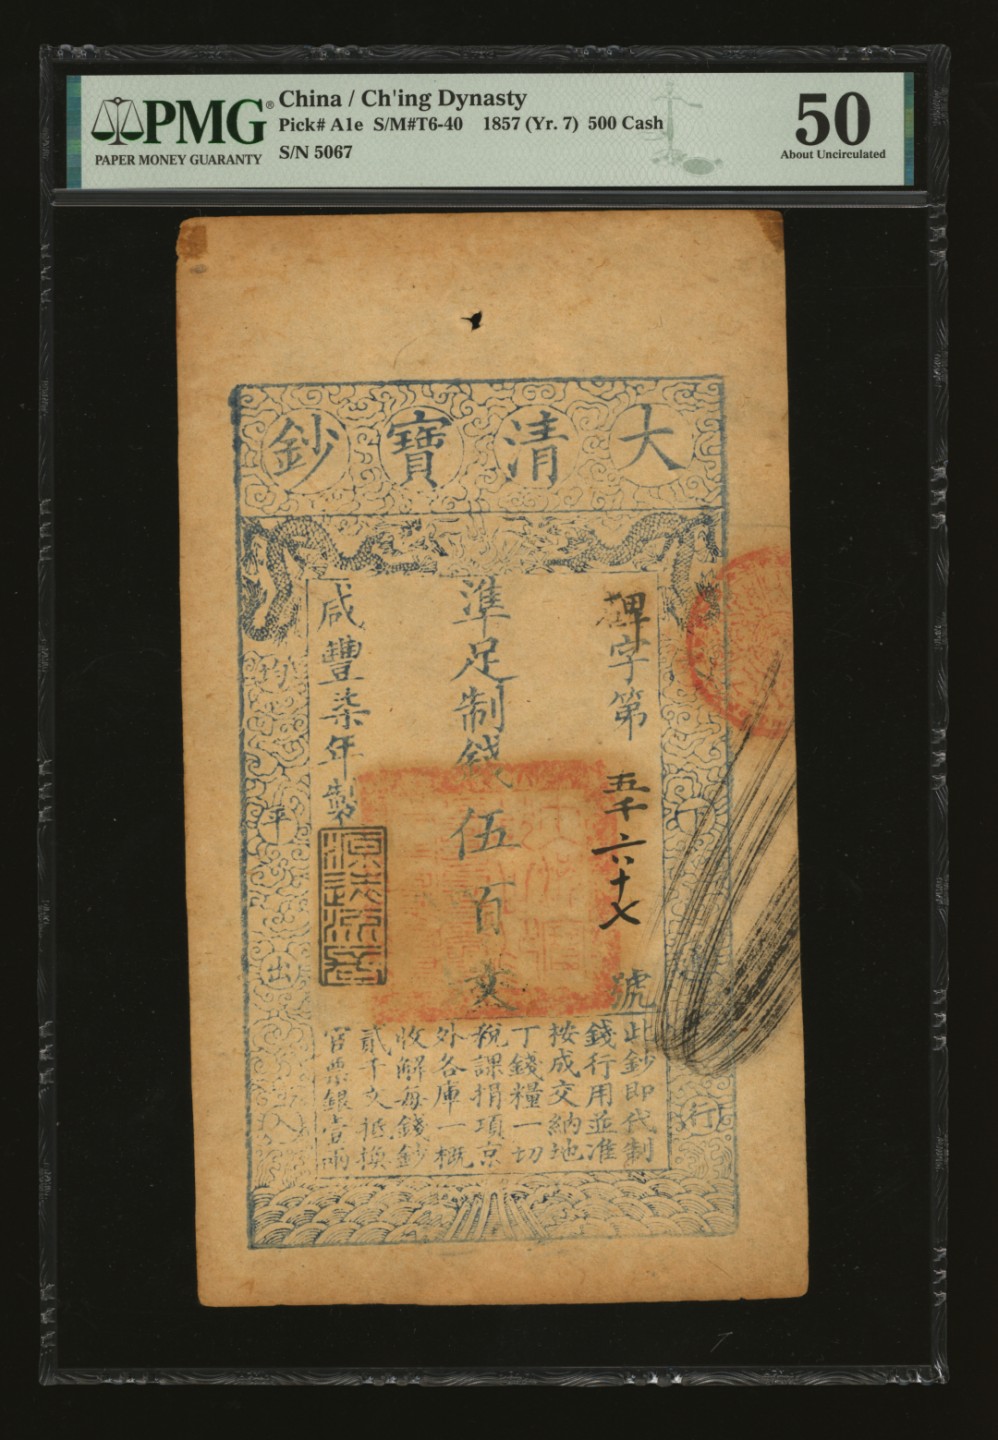 PMG®
PAPER MONEY GUARANTY
China / Ch'ing Dynasty
Pick# A1e S/M#T6-40 1857 (Yr. 7) 500 Cash
S/N 5067
50
About Uncirculated
大清寶鈔
字第五千六十七號
準足制錢伍百文
咸豐柒年製
天下通行
均平出入
此鈔即代制
錢行用並准
按成交納地
丁錢糧一切
稅課捐項京
外各庫一概
收解每錢鈔
貳千文抵換
官票銀壹兩